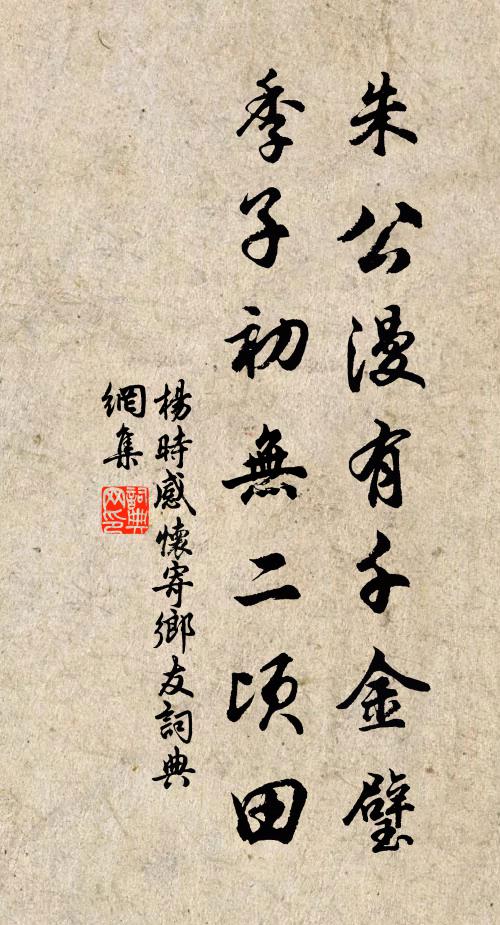 朱公漫有千金璧
季子初無二頃田
楊時感懷寄鄉友詞典
網集
詞典
网印